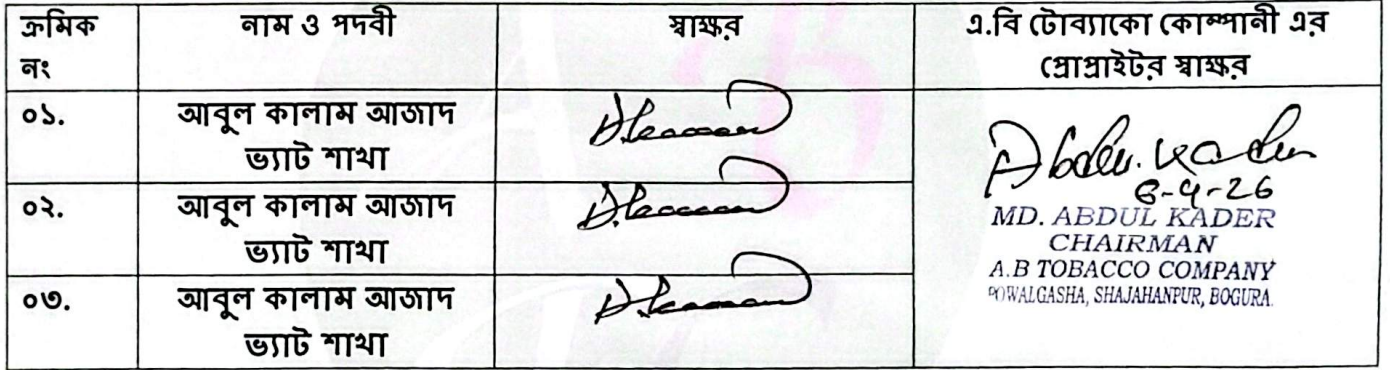 ক্রমিক নং
নাম ও পদবী
স্বাক্ষর
এ.বি টোব্যাকো কোম্পানী এর
প্রোপ্রাইটর স্বাক্ষর
০১.
আবুল কালাম আজাদ
ভ্যাট শাখা
Abdul. Kader
6-4-26
MD. ABDUL KADER
CHAIRMAN
A.B TOBACCO COMPANY
POWALGASHA, SHAJAHANPUR, BOGURA.
০২.
আবুল কালাম আজাদ
ভ্যাট শাখা
০৩.
আবুল কালাম আজাদ
ভ্যাট শাখা